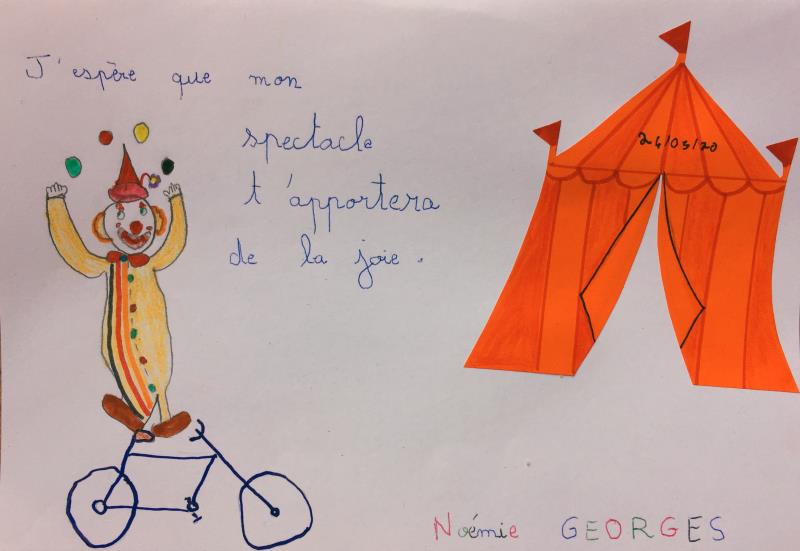 J'espère que mon
spectacle
t'apportera
de la joie.
24/03/20
Noémie GEORGES